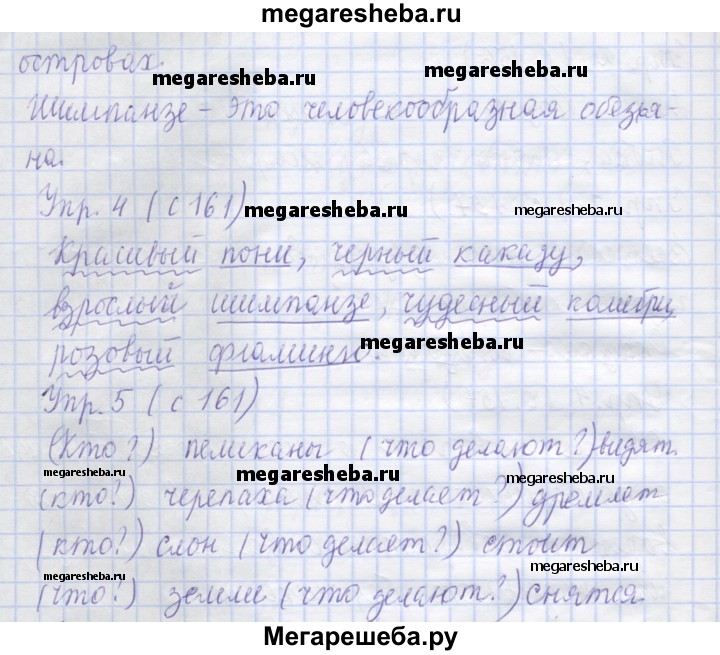 megaresheba.ru
островах.
megaresheba.ru megaresheba.ru
Шимпанзе – это человекообразная обезья-
на.
Упр. 4 (с 161) megaresheba.ru megaresheba.ru
Красивый пони, черный какаду,
взрослый шимпанзе, чудесный колибри,
megaresheba.ru
розовый фламинго.
Упр. 5 (с 161)
(Кто?) пеликаны (что делают?) видят
megaresheba.ru megaresheba.ru megaresheba.ru
(кто?) черепаха (что делает?) дремлет
(кто?) слон (что делает?) стоит
megaresheba.ru megaresheba.ru megaresheba.ru
(что?) земли (что делают?) снятся
Мегарешеба.ру